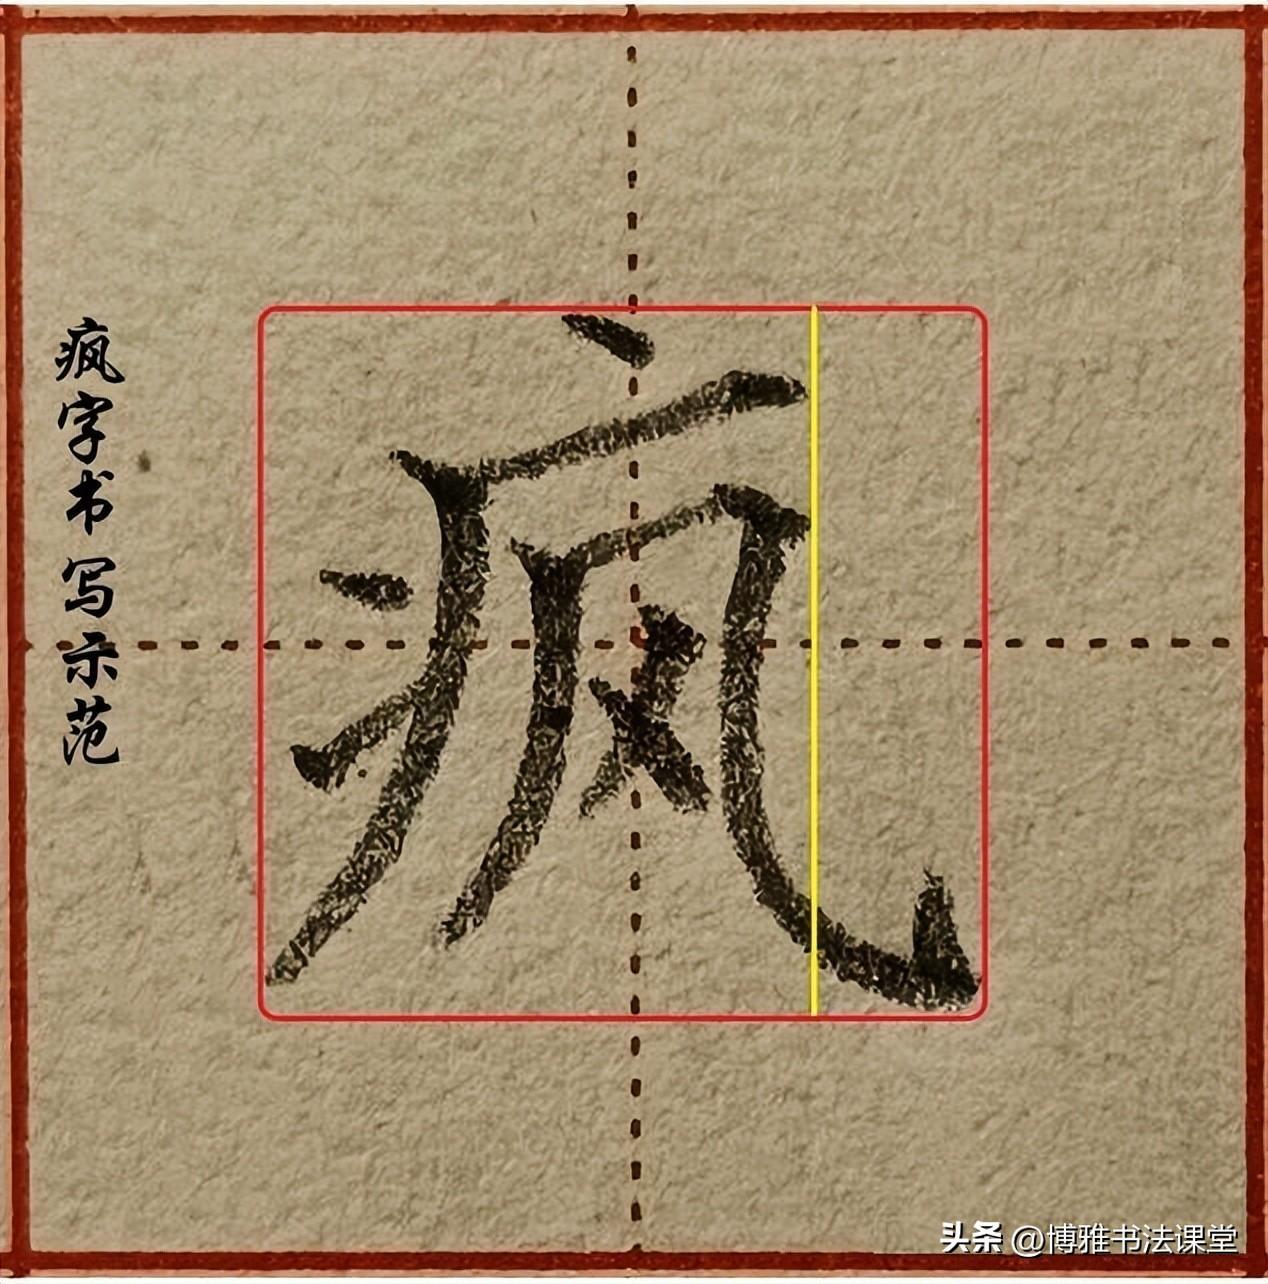 疯字书写示范
疯
头条 @博雅书法课堂